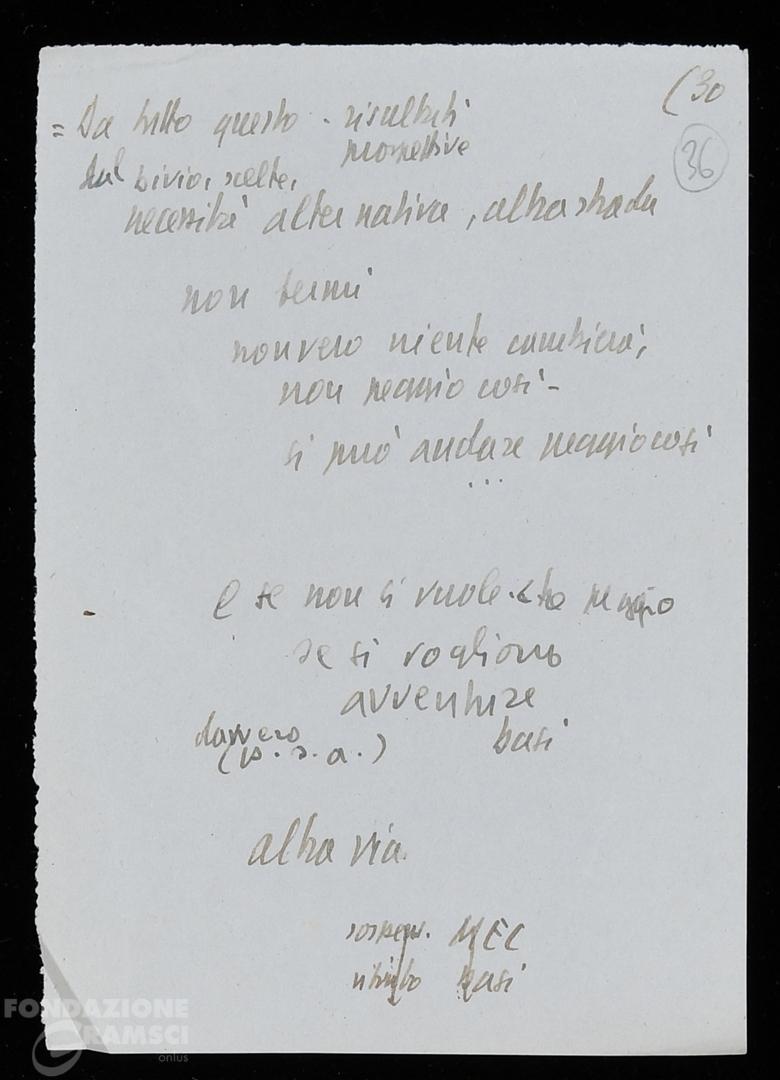 (30
36
= Da tutto questo - risultati
prospettive
dal bivio, scelte,
necessità alternativa, altra strada
non temi
non vero niente cambierà;
non peggio così -
si può andare peggio così
...
e se non si vuole che peggio
se si vogliono
avventure
davvero basi
(p. s. a.)
altra via.
sospens. MEC
ritiro basi
FONDAZIONE
GRAMSCI
onlus